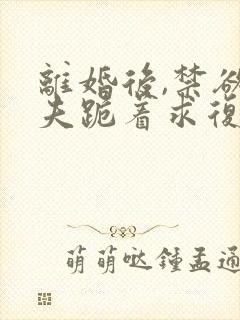 離婚後,禁欲
夫跪着求復
萌萌哒鍾孟通